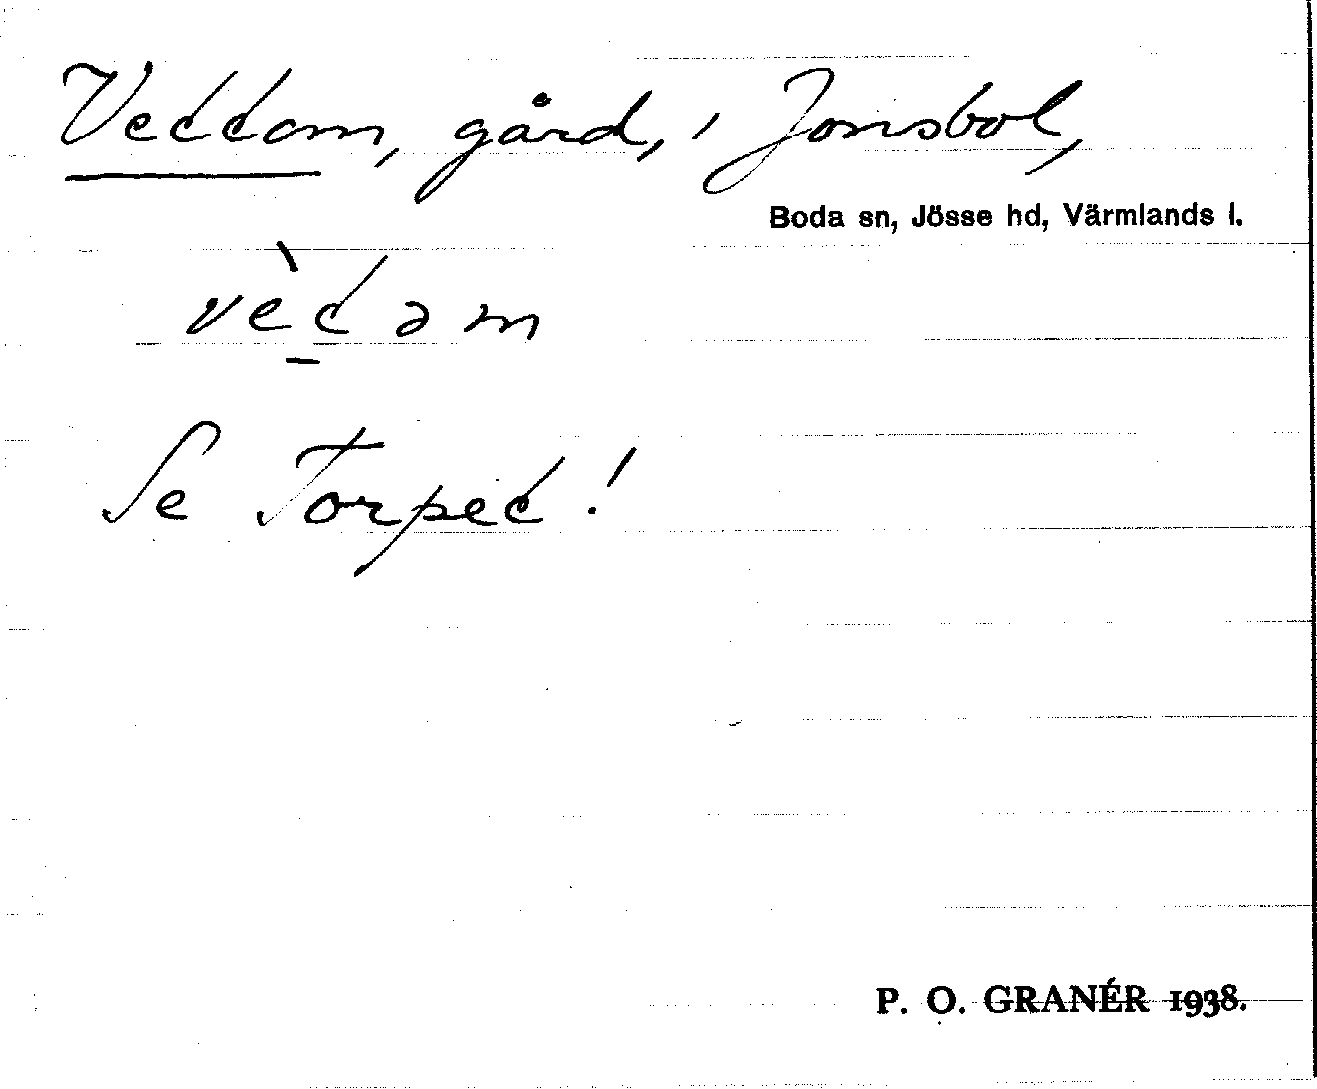 Veddom, gård, i Jonsbol,
Boda sn, Jösse hd, Värmlands l.
vèd̠əm
Se Torped!
P. O. GRANÉR 1938.